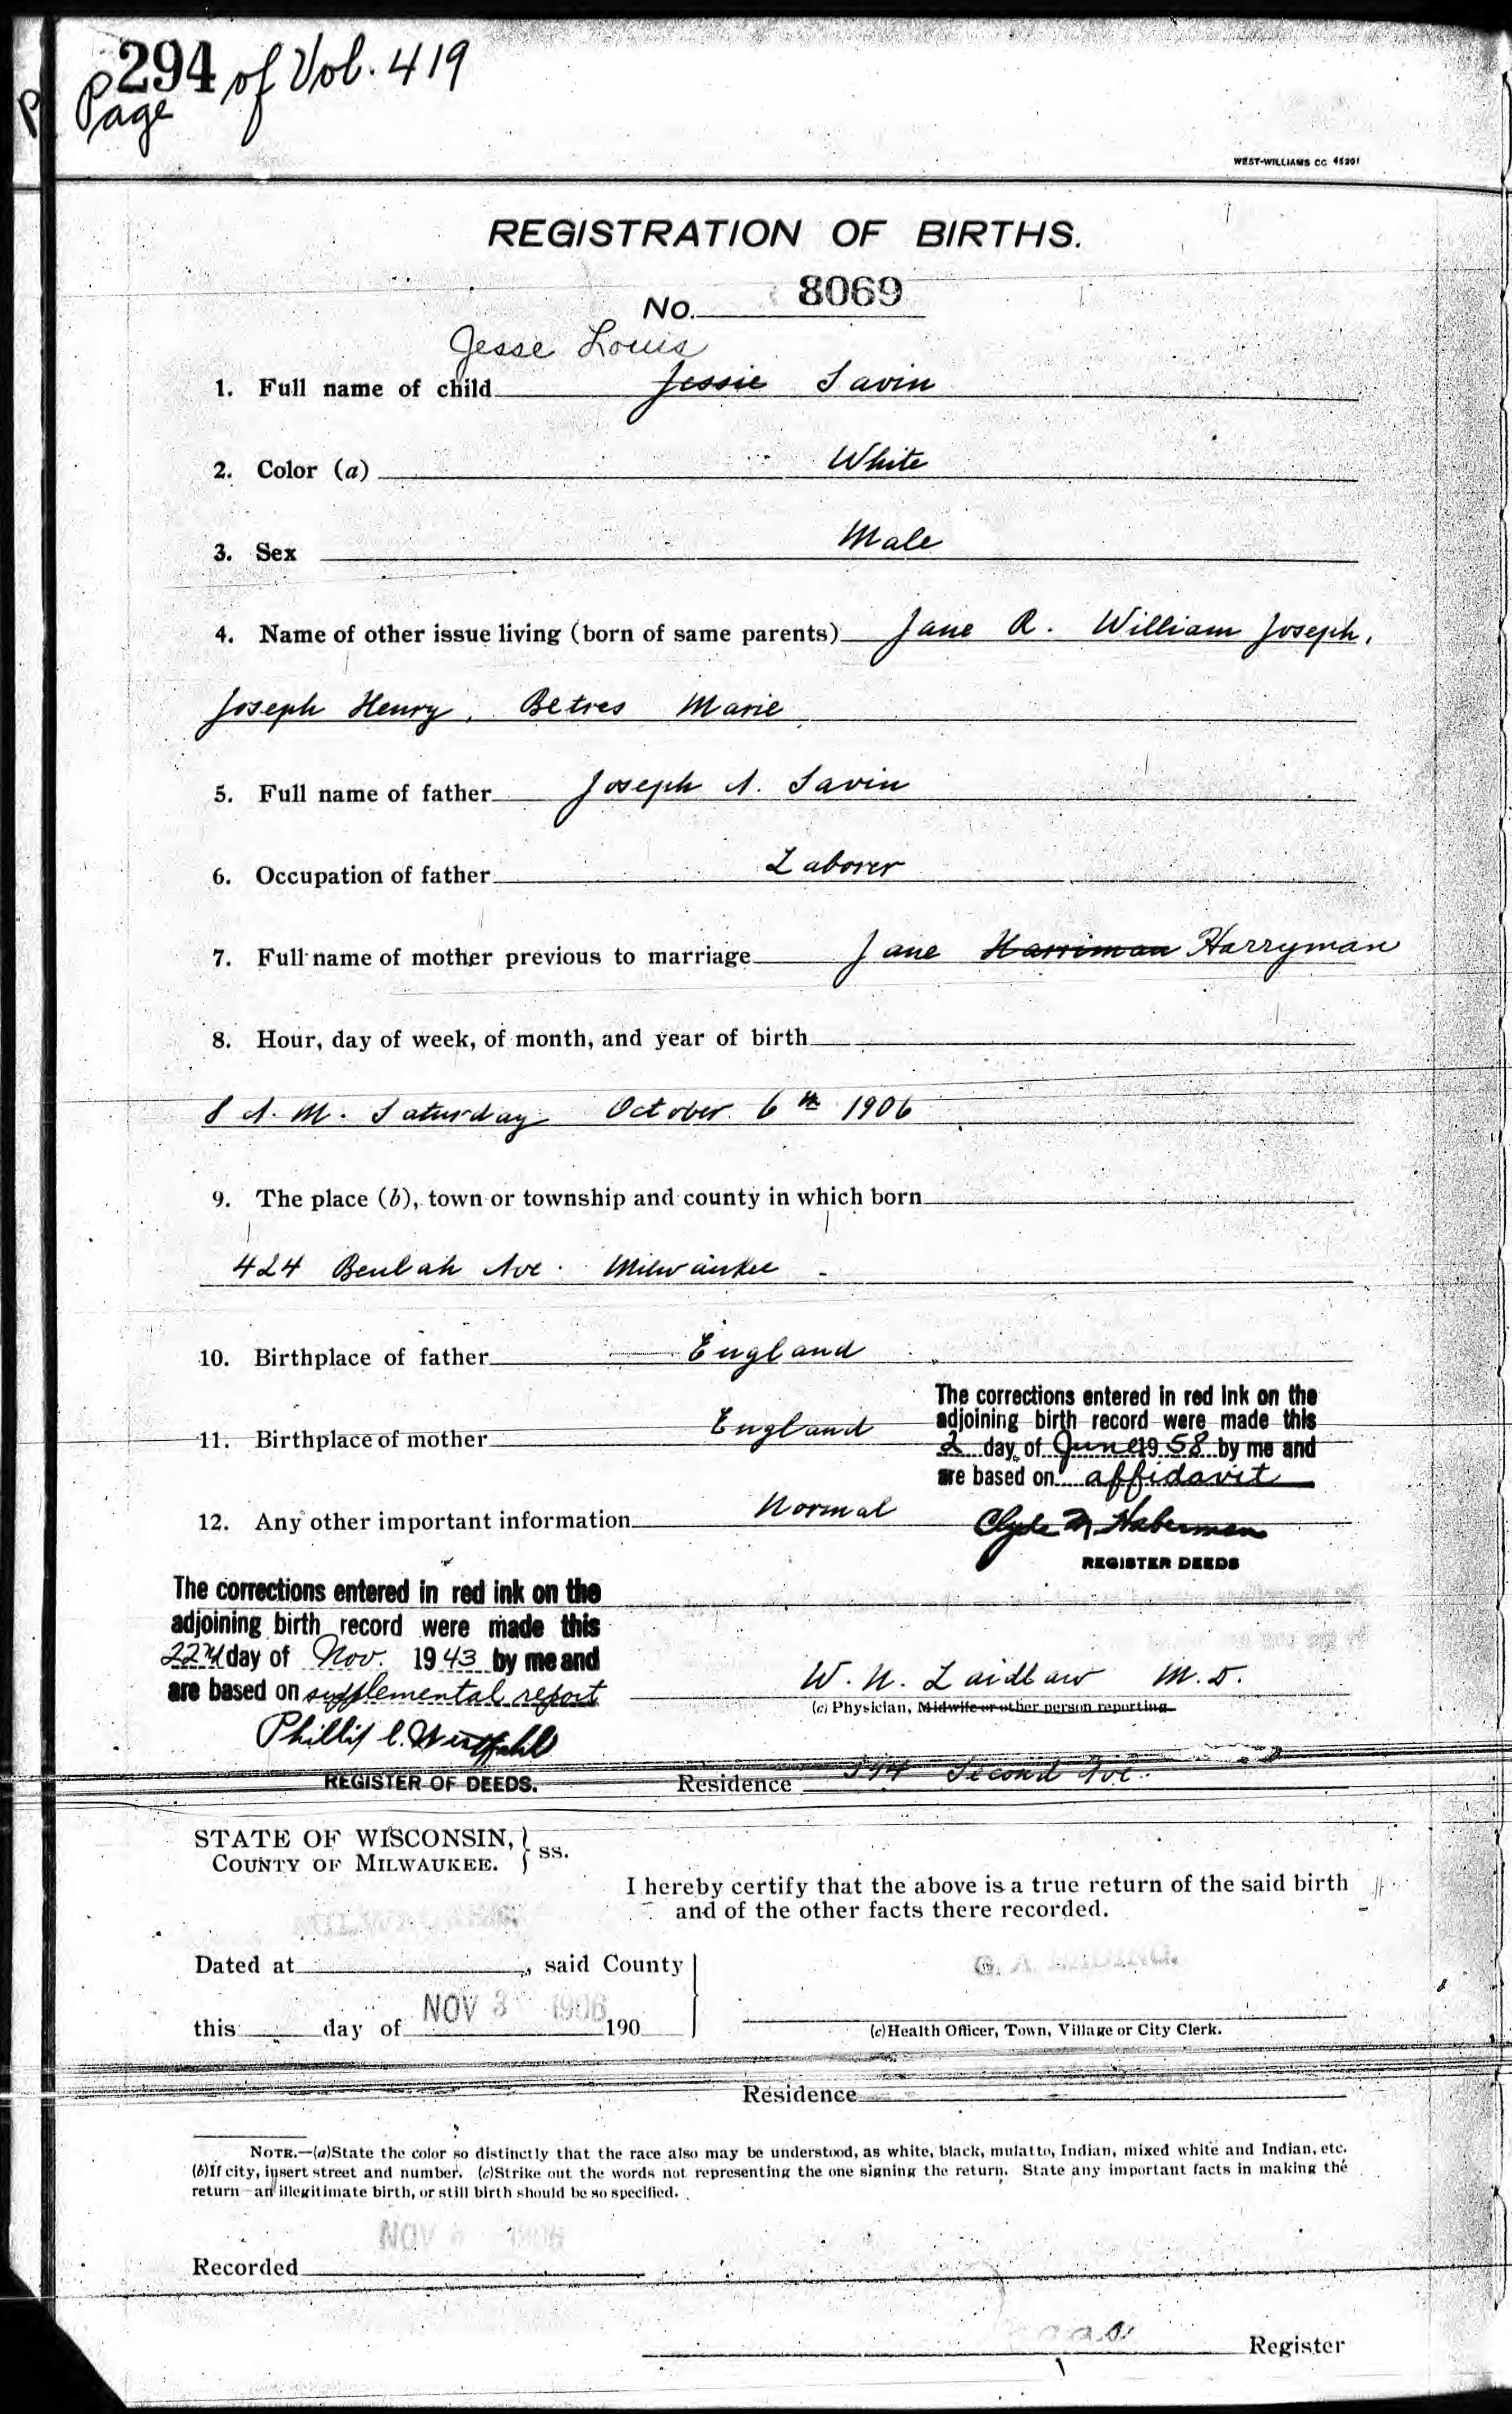 294 of Vol. 419
Page
WEST-WILLIAMS CC 45201
REGISTRATION OF BIRTHS.
No. 8069
Jesse Louis
1. Full name of child Jessie Savin
2. Color (a) White
3. Sex Male
4. Name of other issue living (born of same parents) Jane R. William Joseph,
Joseph Henry, Betres Marie
5. Full name of father Joseph A. Savin
6. Occupation of father Laborer
7. Full name of mother previous to marriage Jane Harriman Harryman
8. Hour, day of week, of month, and year of birth
8 A. M. Saturday October 6th 1906
9. The place (b), town or township and county in which born
424 Beulah Ave. Milwaukee
10. Birthplace of father England
11. Birthplace of mother England
The corrections entered in red ink on the
adjoining birth record were made this
2 day of June 1958 by me and
are based on affidavit
Clyde M Haberman
REGISTER DEEDS
12. Any other important information Normal
The corrections entered in red ink on the
adjoining birth record were made this
22d day of Nov. 1943 by me and
are based on supplemental report
Phillip C. Westfahl
REGISTER OF DEEDS.
W. N. Laidlaw M.D.
(c) Physician, Midwife or other person reporting.
Residence Second Ave.
STATE OF WISCONSIN,
COUNTY OF MILWAUKEE. } ss.
I hereby certify that the above is a true return of the said birth
and of the other facts there recorded.
Dated at , said County
this day of NOV 3 1906 190
(c) Health Officer, Town, Village or City Clerk.
Residence
NOTE.—(a) State the color so distinctly that the race also may be understood, as white, black, mulatto, Indian, mixed white and Indian, etc.
(b) If city, insert street and number. (c) Strike out the words not representing the one signing the return. State any important facts in making the
return—an illegitimate birth, or still birth should be so specified.
NOV
Recorded
Register